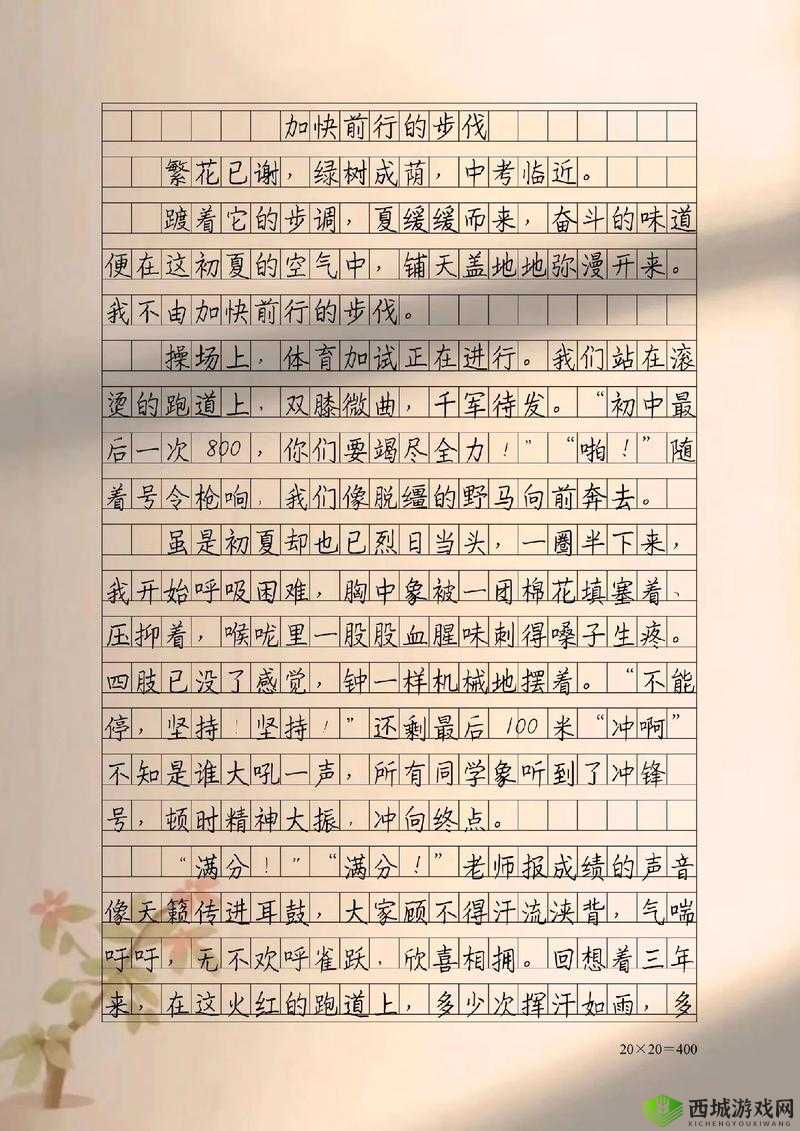 加快前行的步伐
繁花已谢，绿树成荫，中考临近。
踱着它的步调，夏缓缓而来，奋斗的味道
便在这初夏的空气中，铺天盖地地弥漫开来。
我不由加快前行的步伐。
操场上，体育加试正在进行。我们站在滚
烫的跑道上，双膝微曲，千军待发。“初中最
后一次800，你们要竭尽全力！”“啪！”随
着号令枪响，我们像脱缰的野马向前奔去。
虽是初夏却也已烈日当头，一圈半下来，
我开始呼吸困难，胸中象被一团棉花填塞着、
压抑着，喉咙里一股股血腥味刺得嗓子生疼。
四肢已没了感觉，钟一样机械地摆着。“不能
停，坚持！坚持！”还剩最后100米“冲啊”
不知是谁大吼一声，所有同学象听到了冲锋
号，顿时精神大振，冲向终点。
“满分！”“满分！”老师报成绩的声音
像天籁传进耳鼓，大家顾不得汗流浃背，气喘
吁吁，无不欢呼雀跃，欣喜相拥。回想着三年
来，在这火红的跑道上，多少次挥汗如雨，多
20×20=400
西城游戏网
XICHENGYOUXIWANG